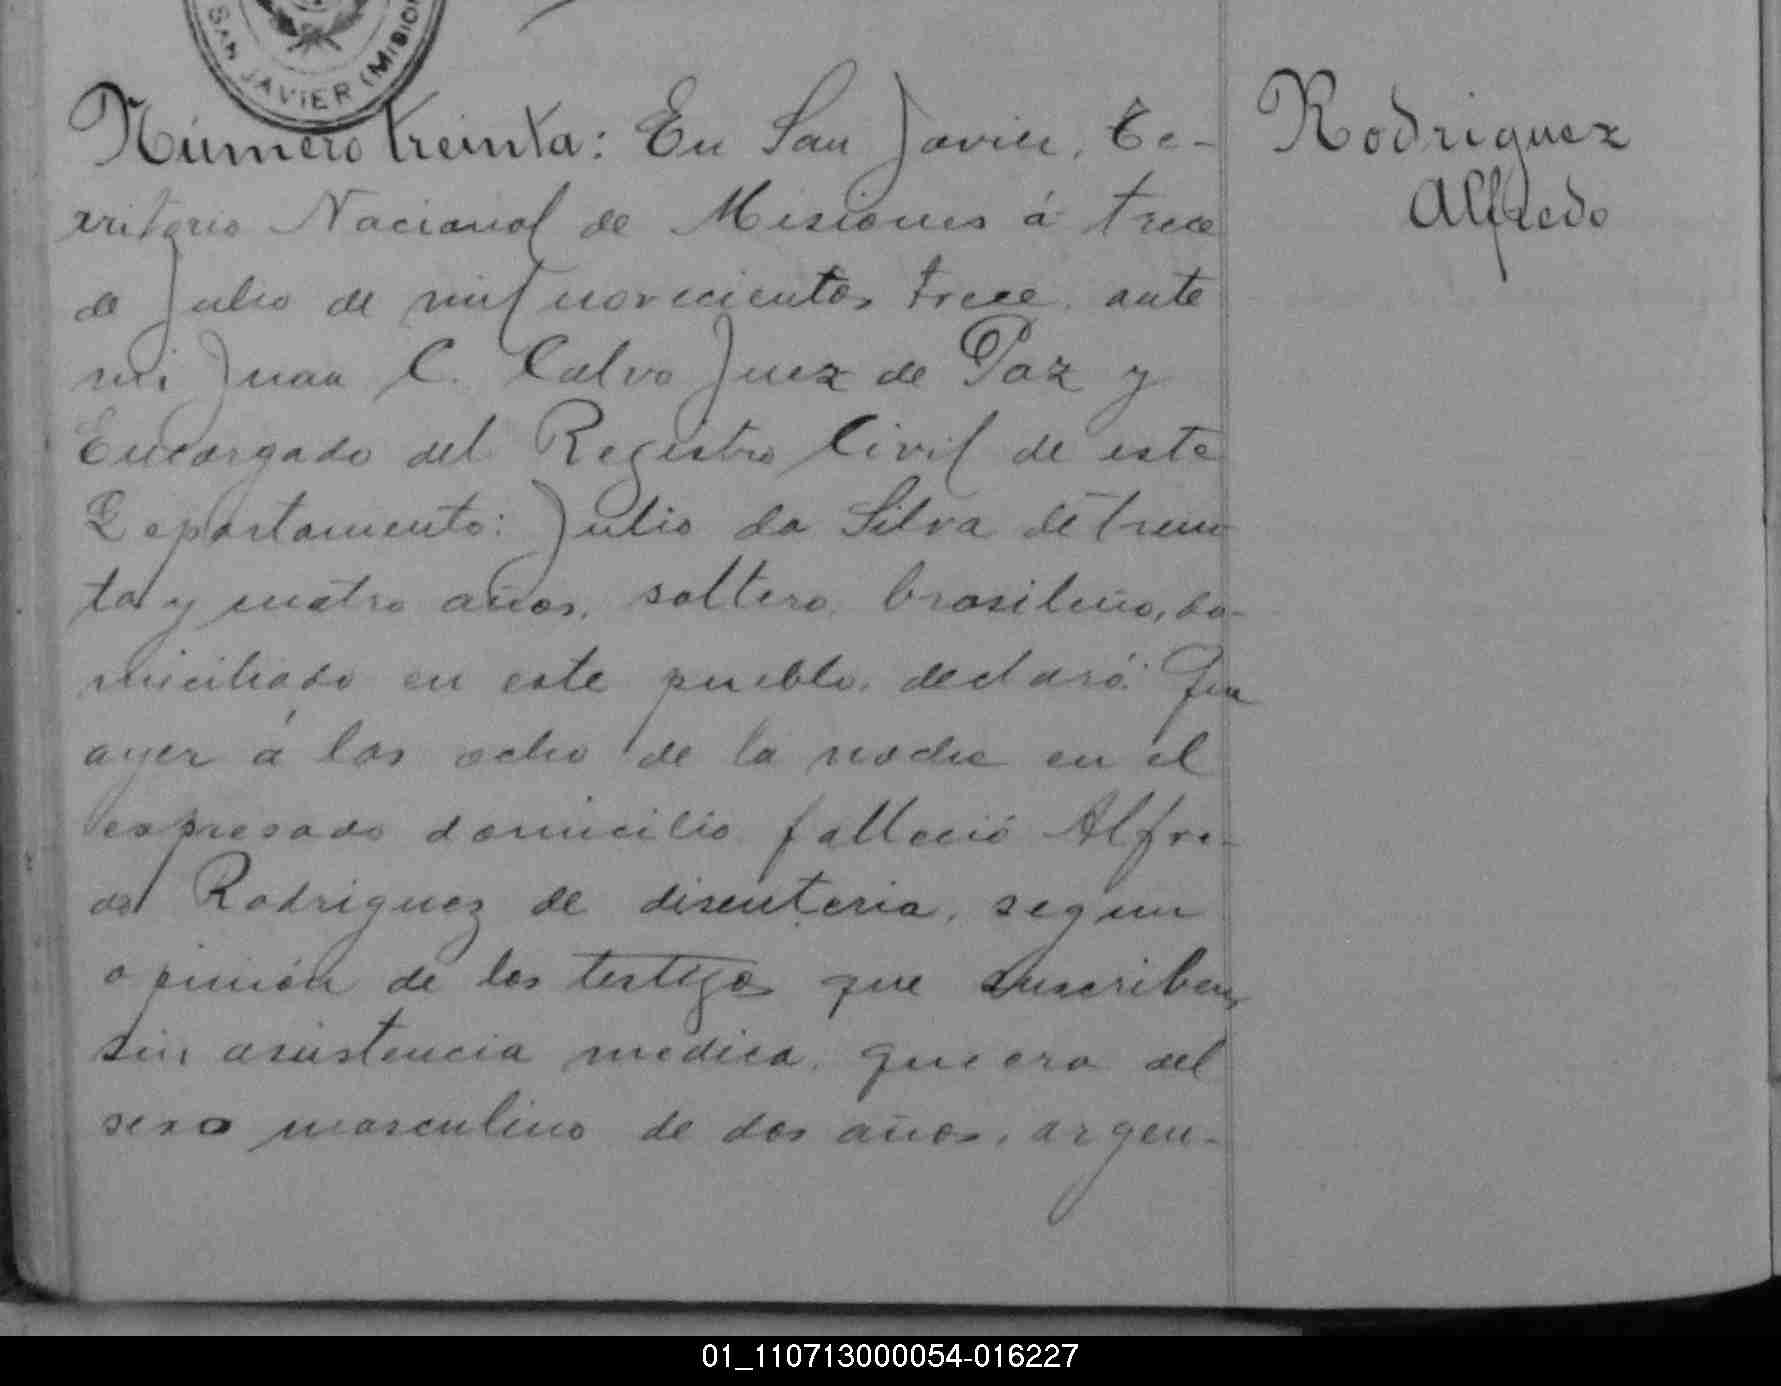 SAN JAVIER (MISION
Número treinta: En San Javier, Te-
rritorio Nacional de Misiones á trece
de Julio de mil novecientos trece, ante
mi Juan C. Calvo Juez de Paz y
Encargado del Registro Civil de este
Departamento: Julio da Silva de trein
ta y cuatro años, soltero, brasileño, do-
miciliado en este pueblo, declaró: Que
ayer á las ocho de la noche en el
expresado domicilio falleció Alfre-
do Rodriguez de disenteria, segun
opinión de los testigos que suscriben,
sin asistencia medica, que era del
sexo masculino de dos años, argen-
Rodriguez
Alfredo
01_110713000054-016227